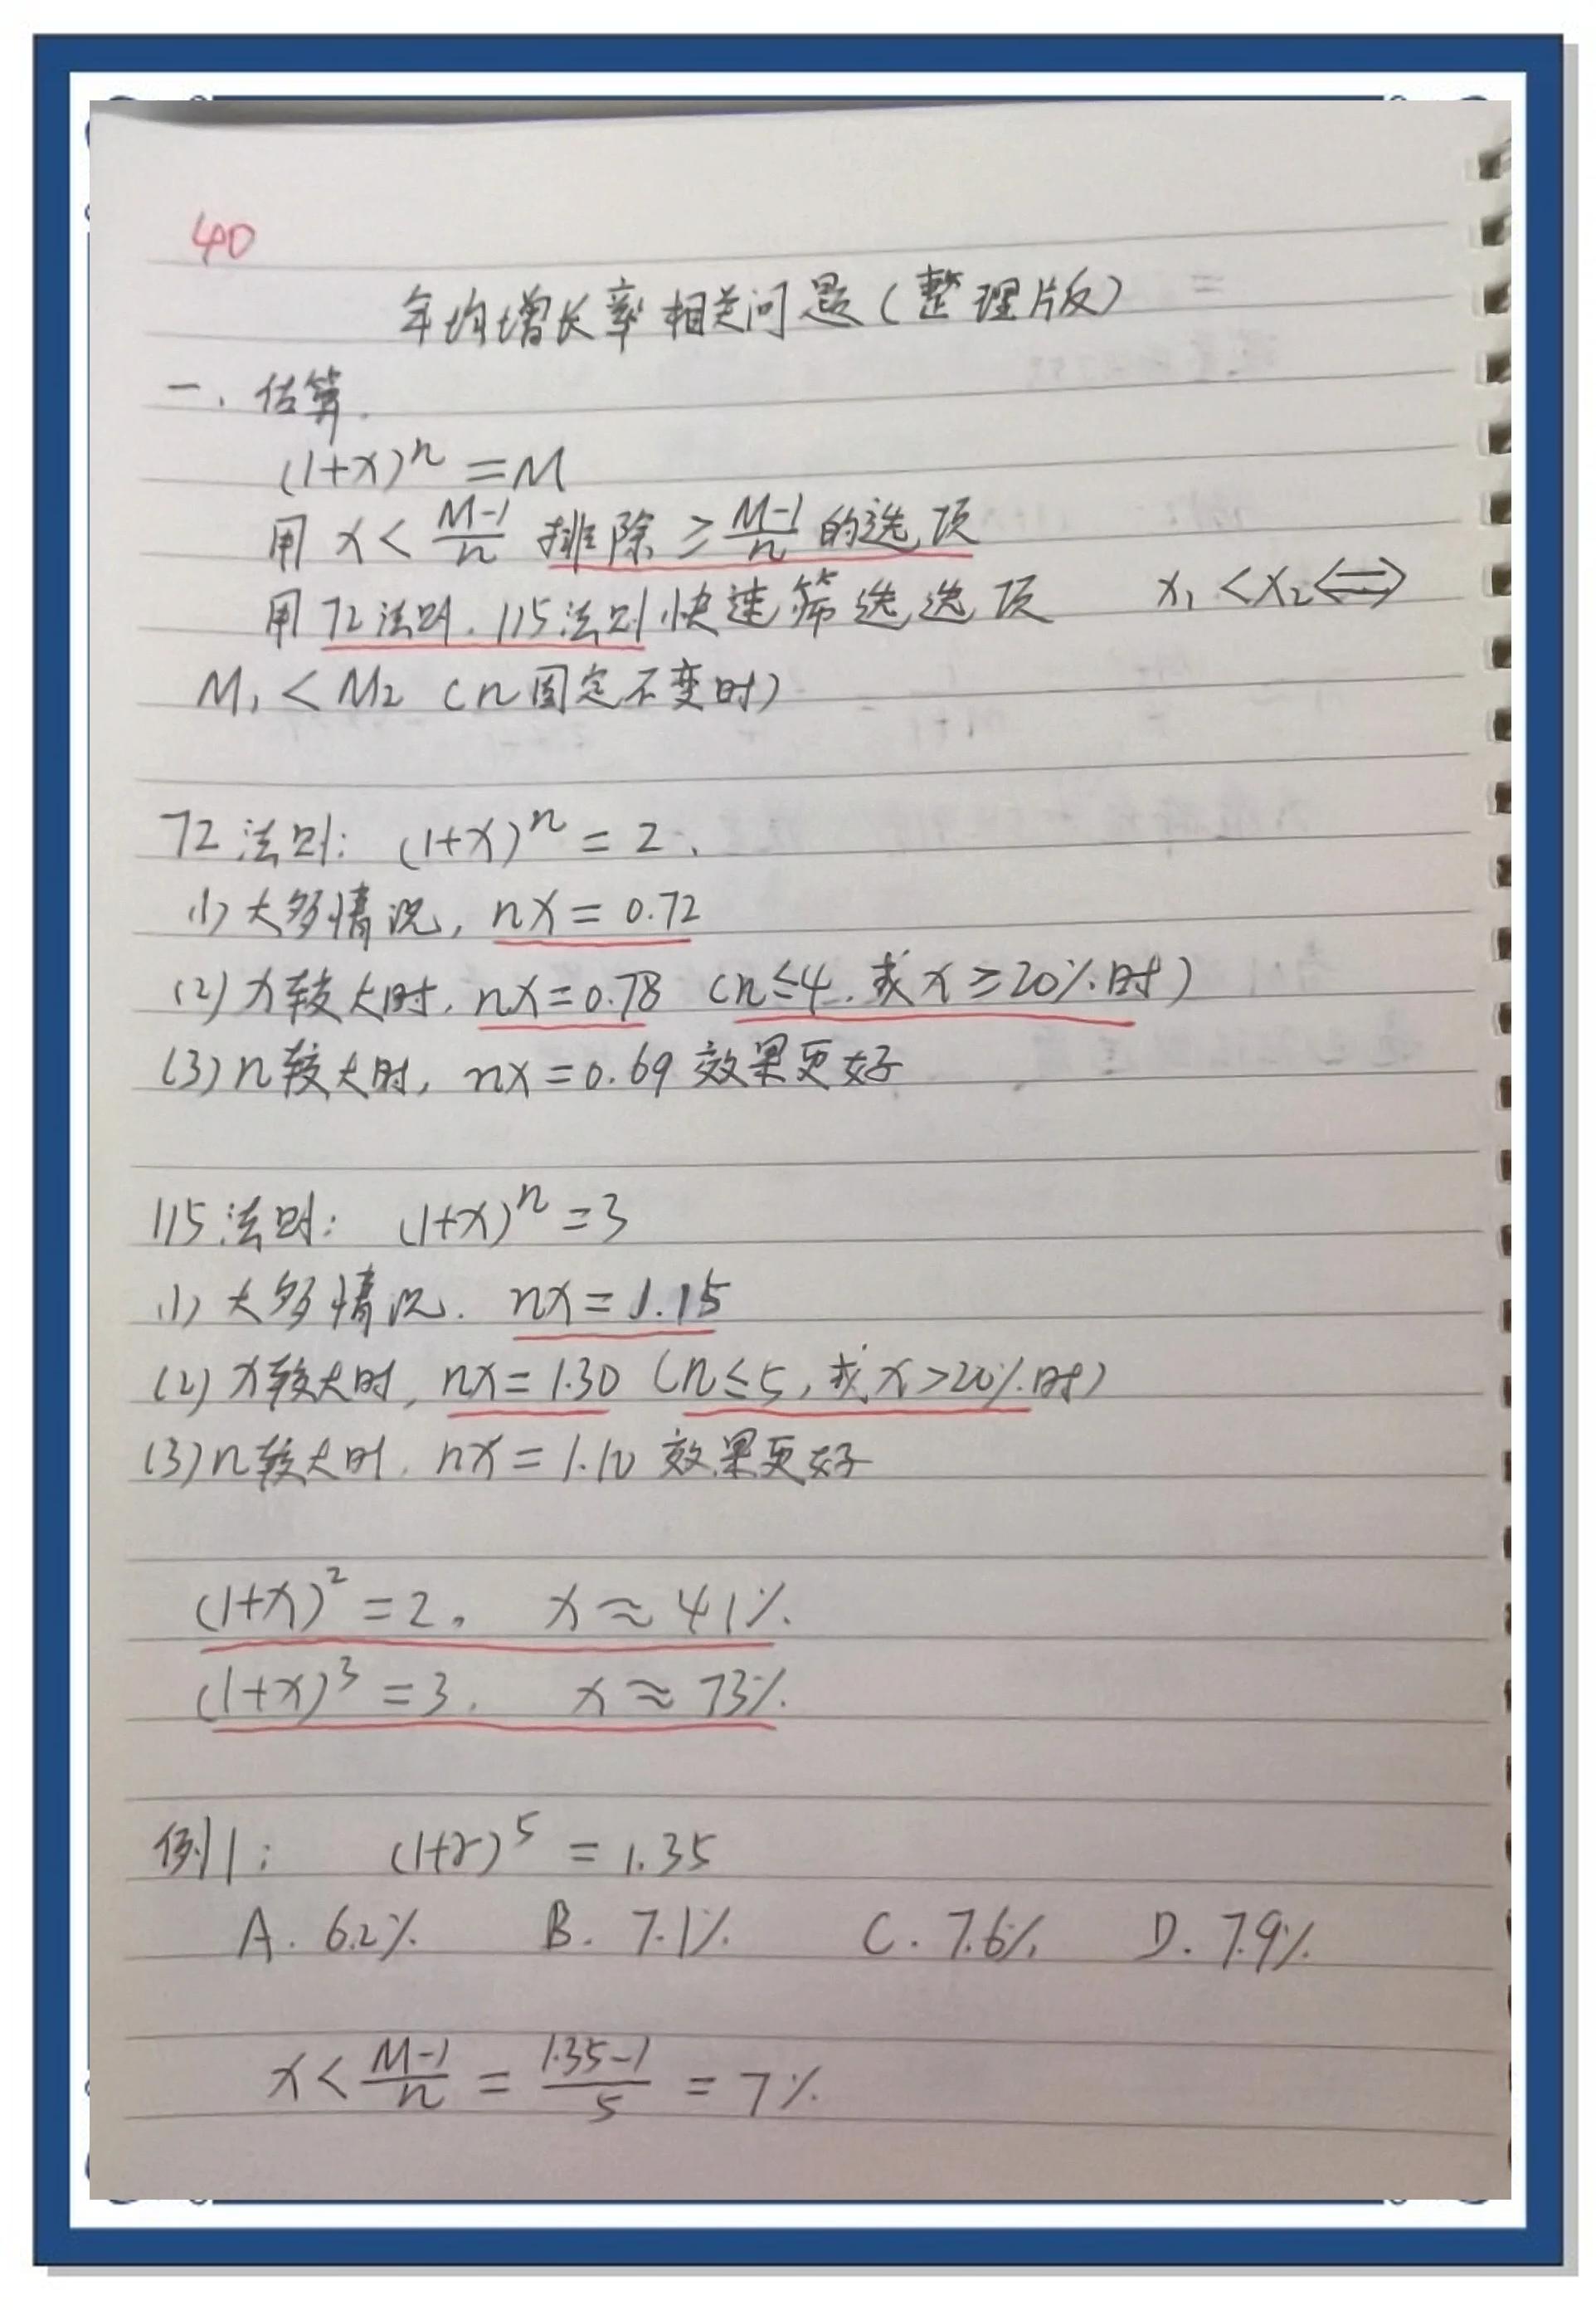 40
年均增长率相关问题(整理版)
一、估算.
(1+x)ⁿ=M
用 x < (M-1)/n 排除 ≥ (M-1)/n 的选项
用72法则、115法则快速筛选选项 x₁<x₂⟺
M₁<M₂ (n固定不变时)
72法则: (1+x)ⁿ = 2.
(1)大多情况, nx = 0.72
(2)x较大时, nx=0.78 (n≤4,或x≥20%时)
(3)n较大时, nx=0.69效果更好
115法则: (1+x)ⁿ=3
(1)大多情况. nx=1.15
(2)x较大时, nx=1.30 (n≤5,或x>20%时)
(3)n较大时. nx=1.10 效果更好
(1+x)²=2. x≈41%.
(1+x)³=3. x≈73%.
例1: (1+r)⁵ = 1.35
A. 6.2% B. 7.1% C. 7.6% D. 7.9%
x < (M-1)/n = (1.35-1)/5 = 7%